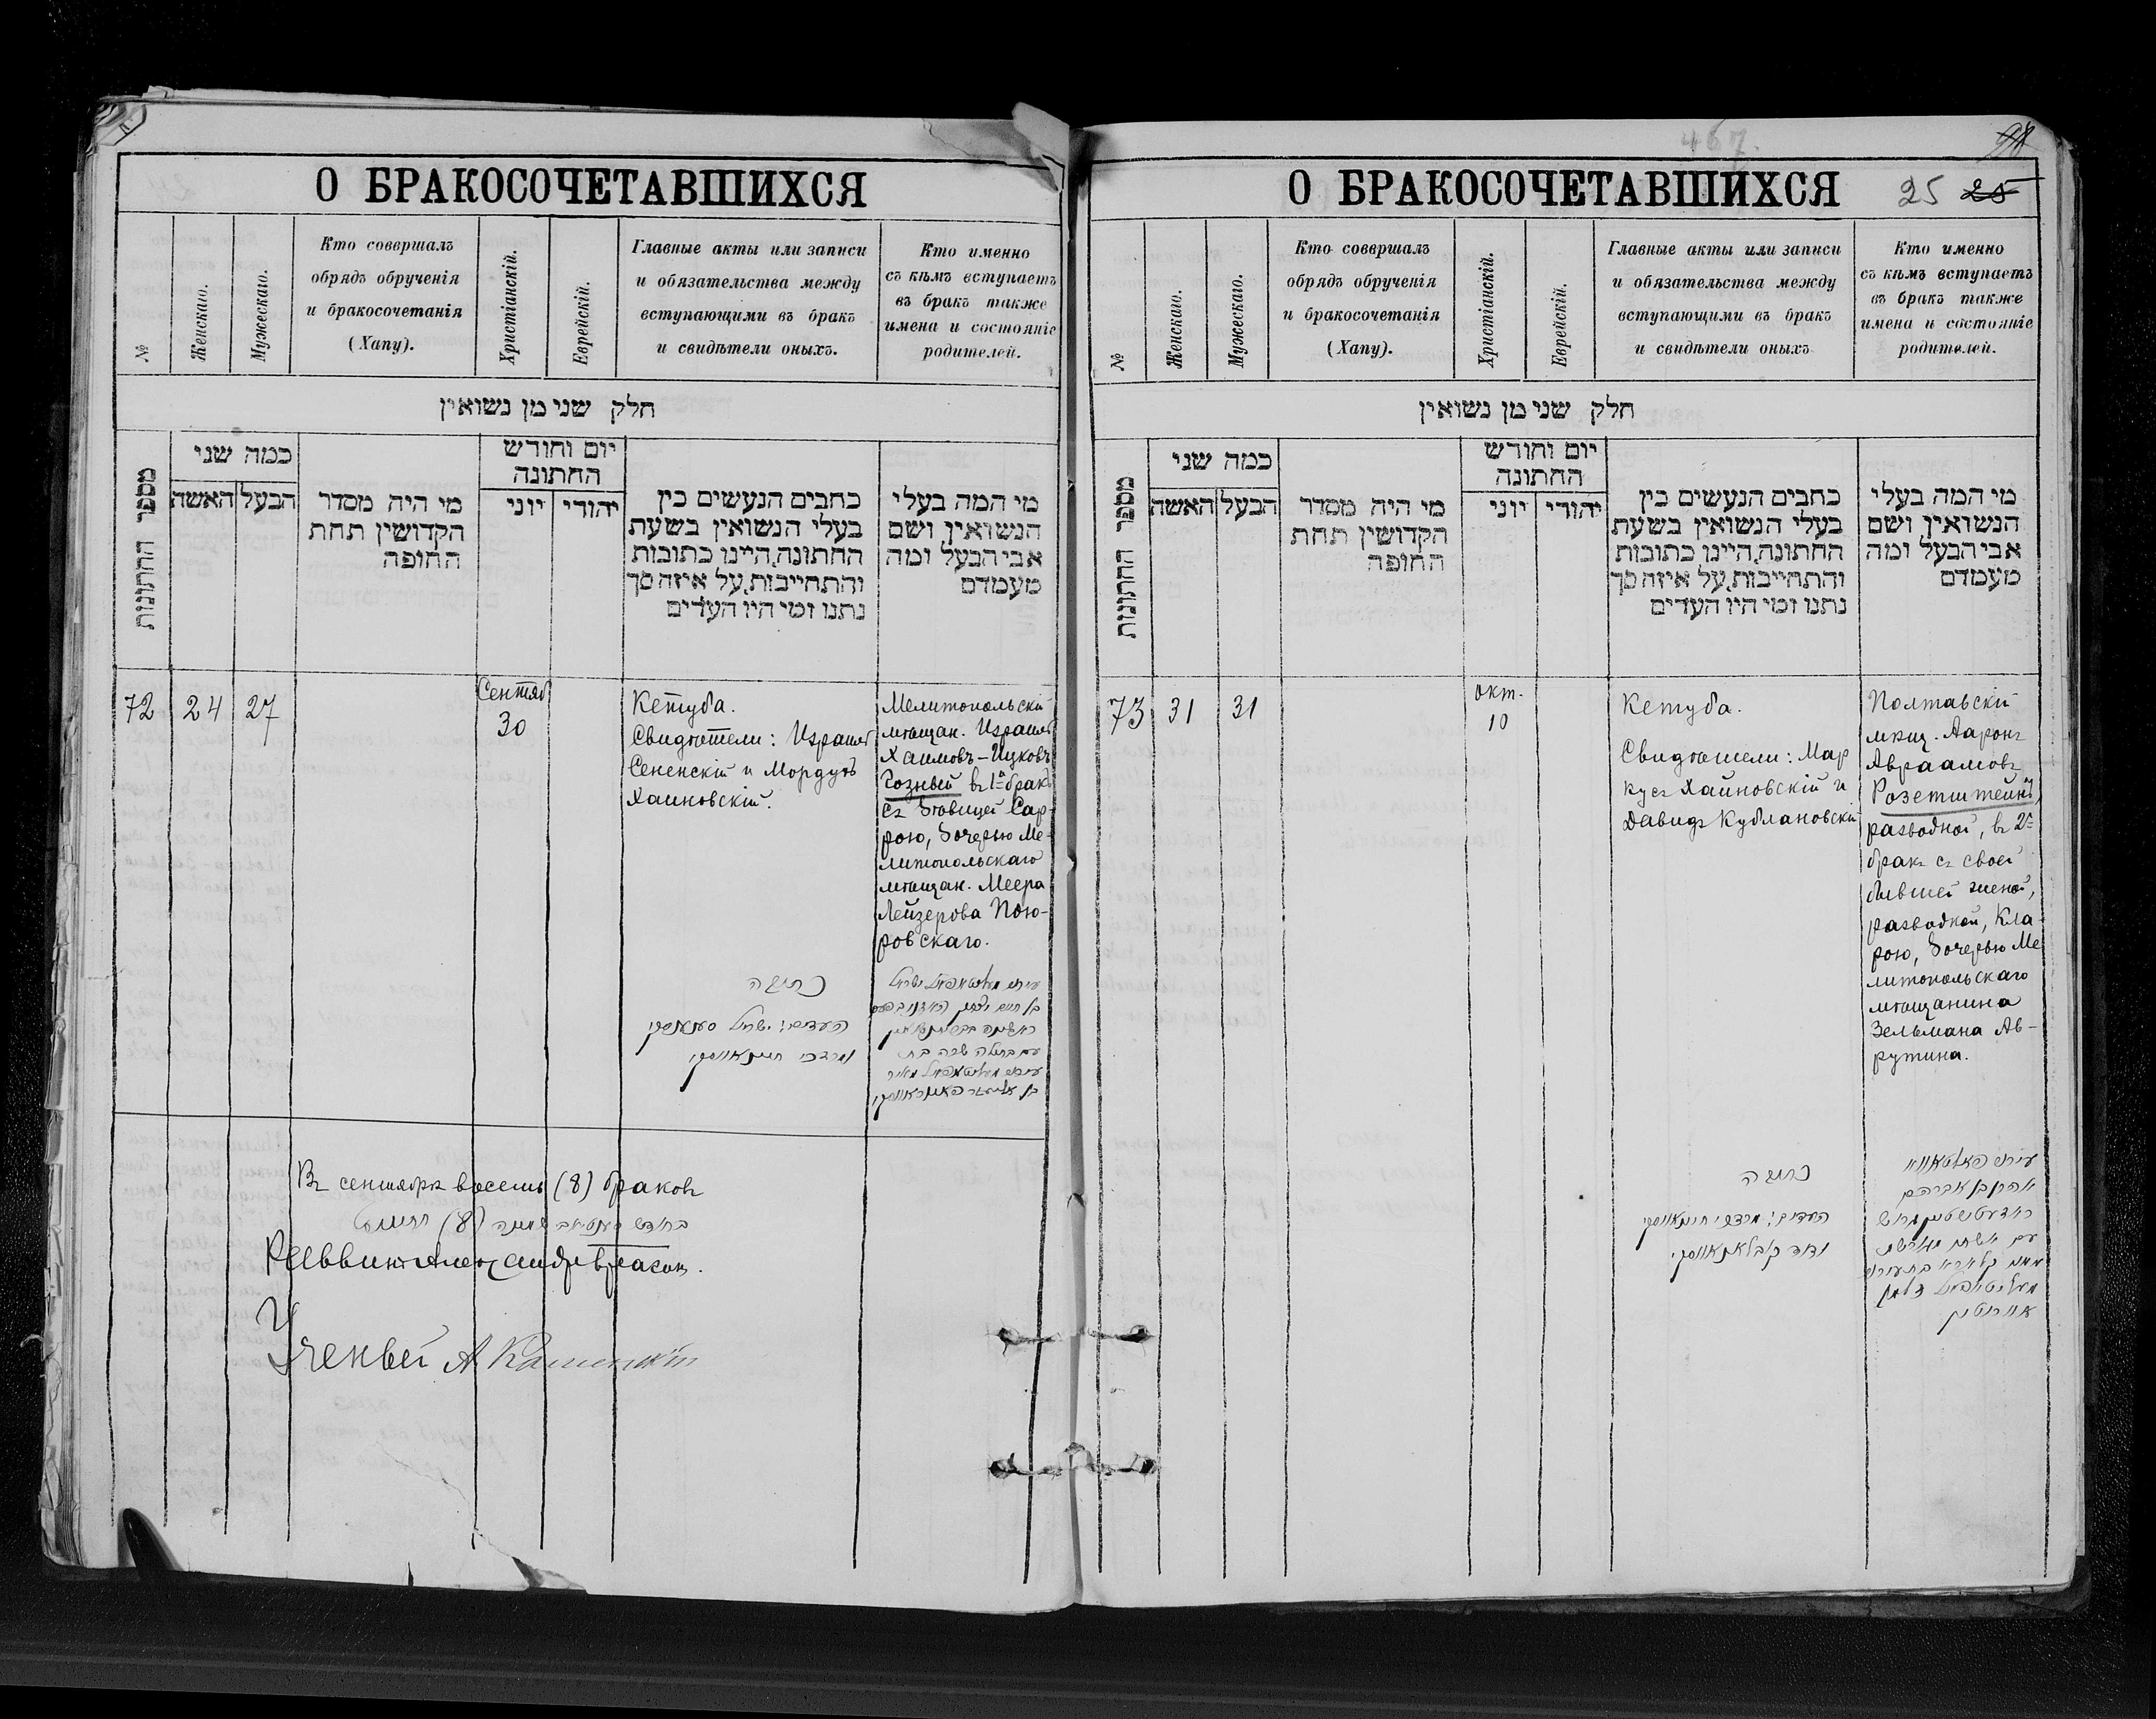 О БРАКОСОЧЕТАВШИХСЯ
№
Женскаго.
Мужескаго.
Кто совершалъ
обрядъ обрученія
и бракосочетанія
(Хапу).
Христіанскій.
Еврейскій.
Главные акты или записи
и обязательства между
вступающими въ бракъ
и свидѣтели оныхъ.
Кто именно
съ кѣмъ вступаетъ
въ бракъ также
имена и состояніе
родителей.
חלק שני מן נשואין
מספר החתונות
כמה שני
האשה
הבעל
מי היה מסדר
הקדושין תחת
החופה
יום וחודש
החתונה
יוני
יהודי
כתבים הנעשים בין
בעלי הנשואין בשעת
החתונה,היינו כתובות
והתחייבות,על איזה סך
נתנו ומי היו העדים
מי המה בעלי
הנשואין ושם
אבי הבעל ומה
מעמדם
72
24
27
Сентяб
30
Кетуба.
Свидѣтели: Израиль
Сененскій и Мордухъ
Хаиновскій.
Мелитопольскій
мѣщан. Израиль
Хаимовъ-Ицковъ
Гозный въ 1й бракъ
съ дѣвицей Сар-
рою, дочерью Ме-
литопольскаго
мѣщан. Меера
Лейзерова Пою-
ровскаго.
כתובה
העדים: ישראל סענענסקי
ומרדכי חיינאווסקי
ישראל
בן חיים
עם בתולה שרה בת
מאיר
בן אליעזר
Въ сентябрѣ восемь (8) браковъ
בחודש סענטיאבר שמונה (8)
Раввинъ
Ученый А Каменскій
467.
О БРАКОСОЧЕТАВШИХСЯ
25 25
№
Женскаго.
Мужескаго.
Кто совершалъ
обрядъ обрученія
и бракосочетанія
(Хапу).
Христіанскій.
Еврейскій.
Главные акты или записи
и обязательства между
вступающими въ бракъ
и свидѣтели оныхъ
Кто именно
съ кѣмъ вступаетъ
въ бракъ также
имена и состояніе
родителей.
חלק שני מן נשואין
מספר החתונות
כמה שני
האשה
הבעל
מי היה מסדר
הקדושין תחת
החופה
יום וחודש
החתונה
יוני
יהודי
כתבים הנעשים בין
בעלי הנשואין בשעת
החתונה,היינו כתובות
והתחייבות,על איזה סך
נתנו ומי היו העדים
מי המה בעלי
הנשואין ושם
אבי הבעל ומה
מעמדם
73
31
31
окт.
10
Кетуба.
Свидѣтели: Мар
кусъ Хаиновскій и
Давидъ Кублановскій
Полтавскій
мѣщ. Ааронъ
Авраамовъ
Розетштейнъ,
разводной, въ 2й
бракъ съ своей
бывшей женой,
разводкой, Кла-
рою, дочерью Ме
литопольскаго
мѣщанина
Зельмана Ав-
рутина.
כתובה
העדים: מרדכי חיינאווסקי
ודוד קובלאנאווסקי
אהרן בן אברהם